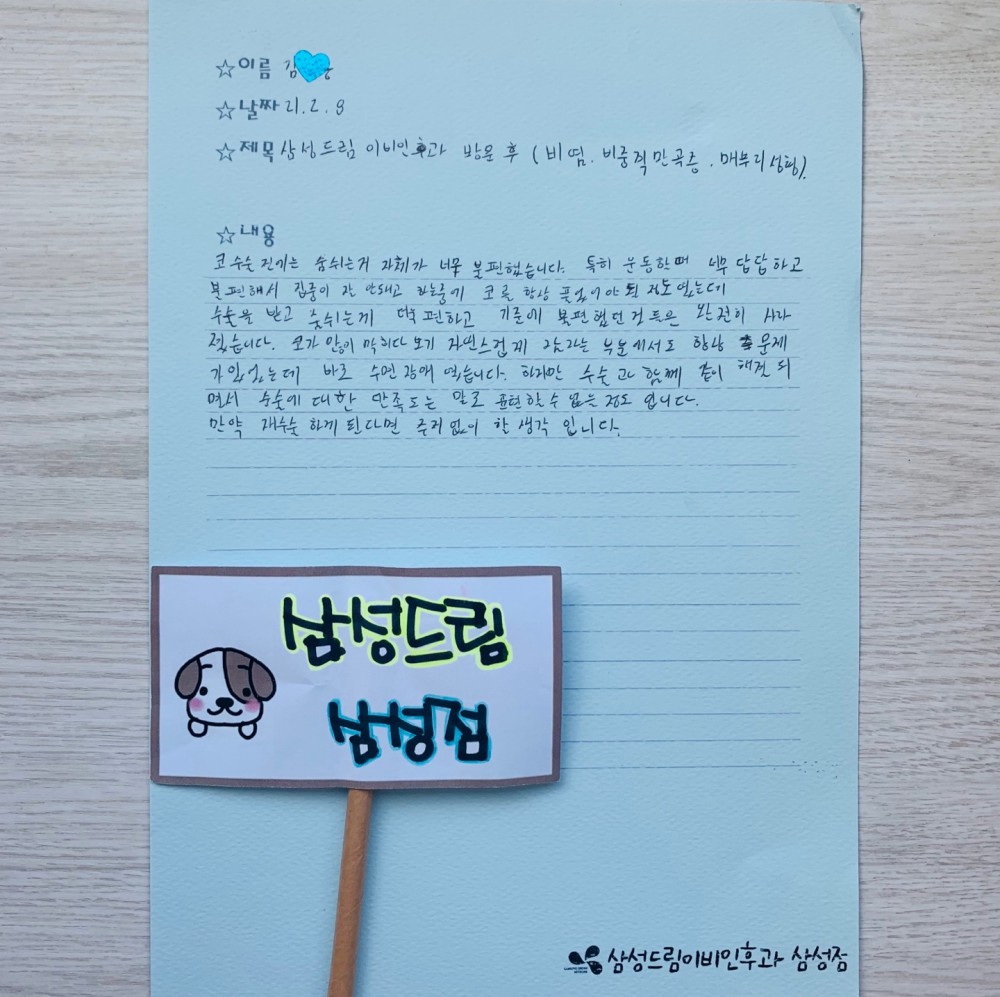 ☆이름 김
☆날짜 21.2.8
☆제목 삼성드림 이비인후과 방문 후 (비염. 비중격만곡증. 매부리성형).
☆내용
코수술 전기는 숨쉬는거 자체가 너무 불편했습니다. 특히 운동할때 너무 답답하고
불편해서 집중이 잘 안돼고 하는중에 코를 항상 풀었어야 될 정도였는데
수술을 받고 숨쉬는게 편하고 기존에 불편했던것들은 완전히 사라
졌습니다. 코가 많이 막히다보기 자연스럽게 잠자는 부분에서도 항상 문제
가있었는데 바로 수면장애 였습니다. 하지만 수술과 함께 같이 해결되
면서 수술에 대한 만족도는 말로 표현할수 없는 정도 입니다.
만약 재수술 하게 된다면 주저없이 할 생각 입니다.
삼성드림
삼성점
삼성드림이비인후과 삼성점